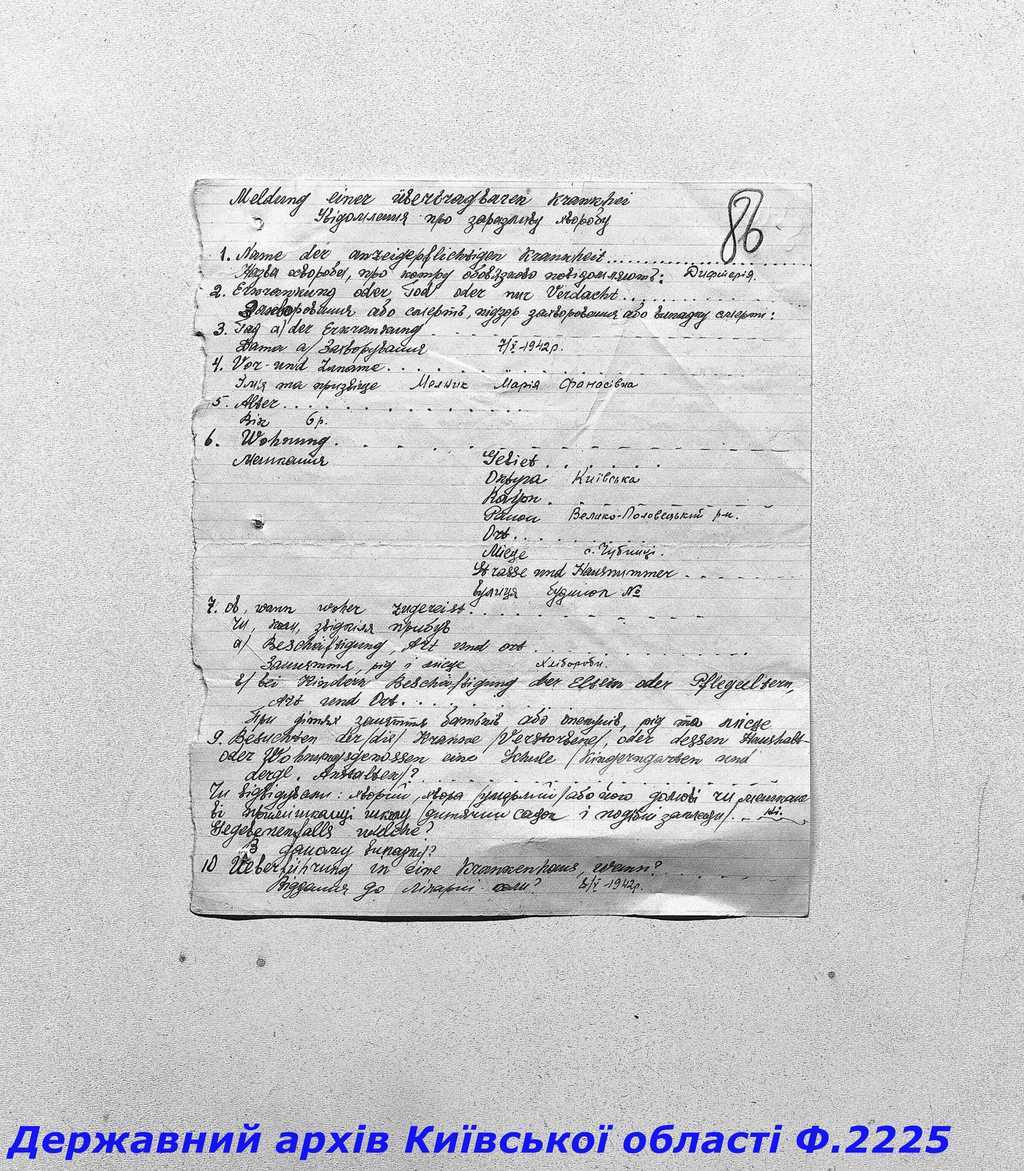 Meldung einer übertragbaren Krankhei
Увідомлення про заразливу хворобу
86
1. Name der anzeigepflichtigen Krankheit...
Назва хвороби, про котру обовязково повідомляють: Дифтерія.
2. Erkrankung oder Tod oder nur Verdacht...
Захворовання або смерть, підзор захворовання або випадку смерті:
3. Tag a/ der Erkrankung
Дата а/ Захворування 7/V-1942р.
4. Vor- und Zuname...
Імя та призвіще Мельник Марія Фанасівна
5. Alter...
Вік 6р.
6. Wohnung...
Мешкання
Gebiet...
Округа Київська
Rayon...
Район Велико-Половецький р-н.
Ort...
Місце с.
Strasse und Hausnummer...
вулиця будинок №
7. Ob, wann woher zugereist...
Чи, коли, звідкіля прибув
a/ Beschäftigung, Art und Ort...
Заняття, рід і місце хлібороби.
b/ bei Kindern Beschäftigung der Eltern oder Pflegeeltern,
Art und Ort...
При дітях заняття батьків або опекунів, рід та місце
9. Besuchten der/die/ Kranke /Verstorbene/, oder dessen Haushalt-
oder Wohnungsgenossen eine Schule /Kingerngarten und
dergl. Anstalten/?
Чи відвідували: хворий, хвора /умерлий/ або його домові чи
школу /дитячий садок і подібні заклади/. ні.
Gegebenenfalls welche?
В даному випадку?
10 Ueberführung in eine Krankenhaus, wann?
Віддання до лікарні коли? 8/V-1942р.
Державний архів Київської області Ф.2225